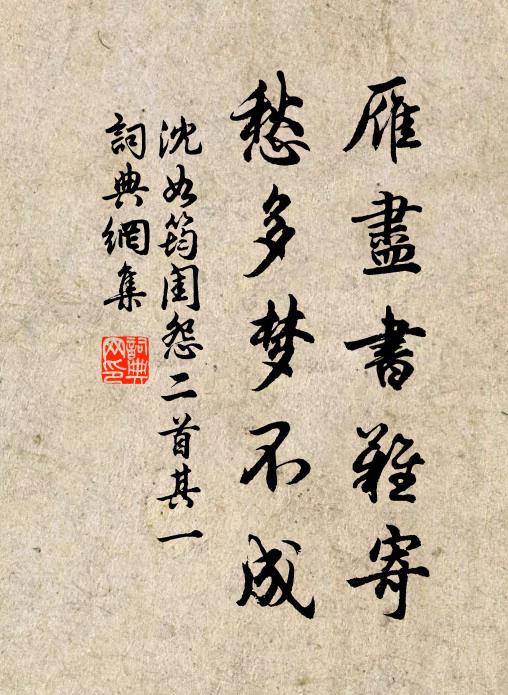 雁盡書難寄
愁多梦不成
沈如筠閨怨二首其一
詞典網集
詞典網印